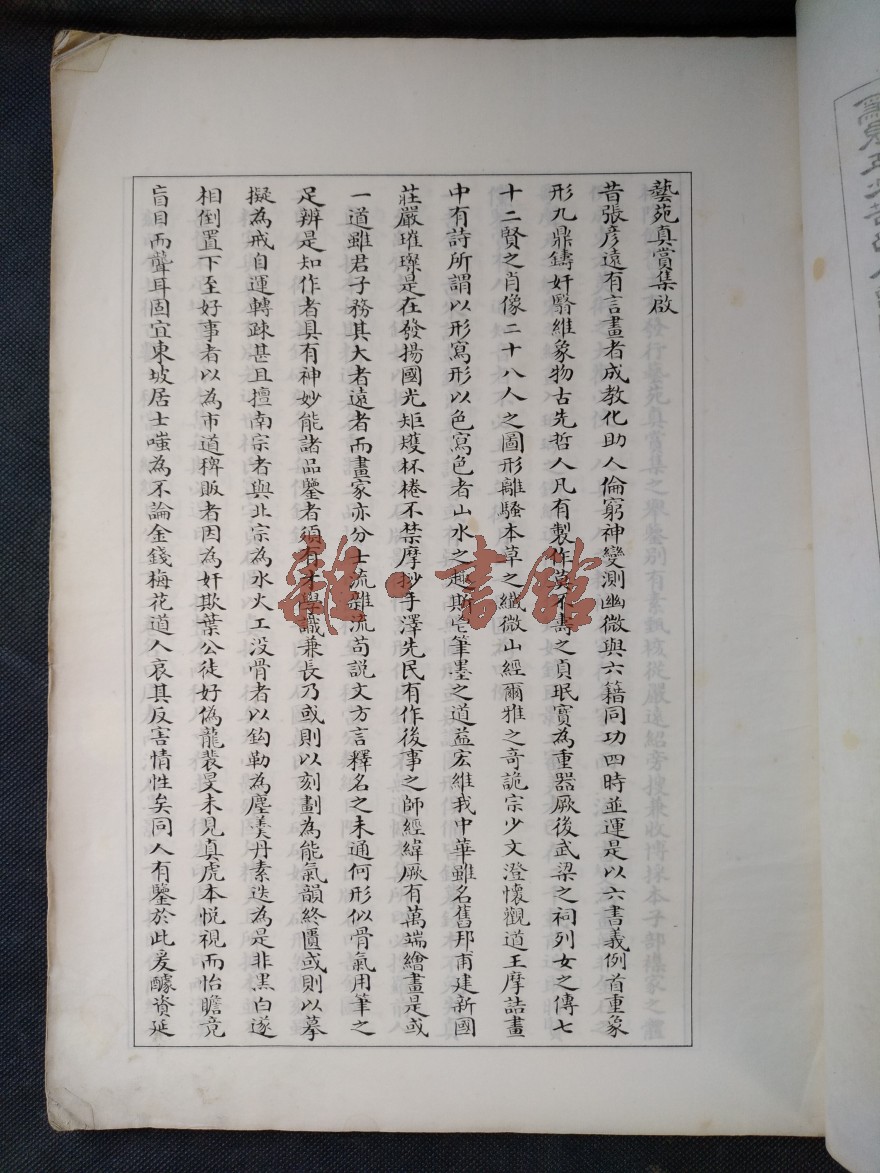 藝苑真賞集啟
昔張彥遠有言畫者成教化助人倫窮神變測幽微與六籍同功四時並運是以六書義例首重象
形九鼎鑄奸翳維象物古先哲人凡有製作莫不壽之貞珉寶為重器厥後武梁之祠列女之傳七
十二賢之肖像二十八人之圖形離騷本草之纖微山經爾雅之奇詭宗少文澄懷觀道王摩詰畫
中有詩所謂以形寫形以色寫色者山水之趣斯笔筆墨之道益宏維我中華雖名舊邦甫建新國
莊嚴璀璨是在發揚國光矩矱杯棬不禁摩抄手澤先民有作後事之師經緯厥有萬端繪畫是或
一道雖君子務其大者遠者而畫家亦分士流雜流苟說文方言釋名之未通何形似骨氣用筆之
足辨是知作者具有神妙能諸品鑒者須有才學識兼長乃或則以刻劃為能氣韻終匱或則以摹
擬為戒自運轉疎甚且擅南宗者與北宗為水火工沒骨者以鈎勒為塵羹丹素迭為是非黑白遂
相倒置下至好事者以為市道稗販者因為奸欺葉公徒好偽龍裴旻未見真虎本悅視而怡瞻竟
盲目而聾耳固宜東坡居士嗤為不論金錢梅花道人哀其反害情性矣同人有鑒於此爰醵資延
雜·書館